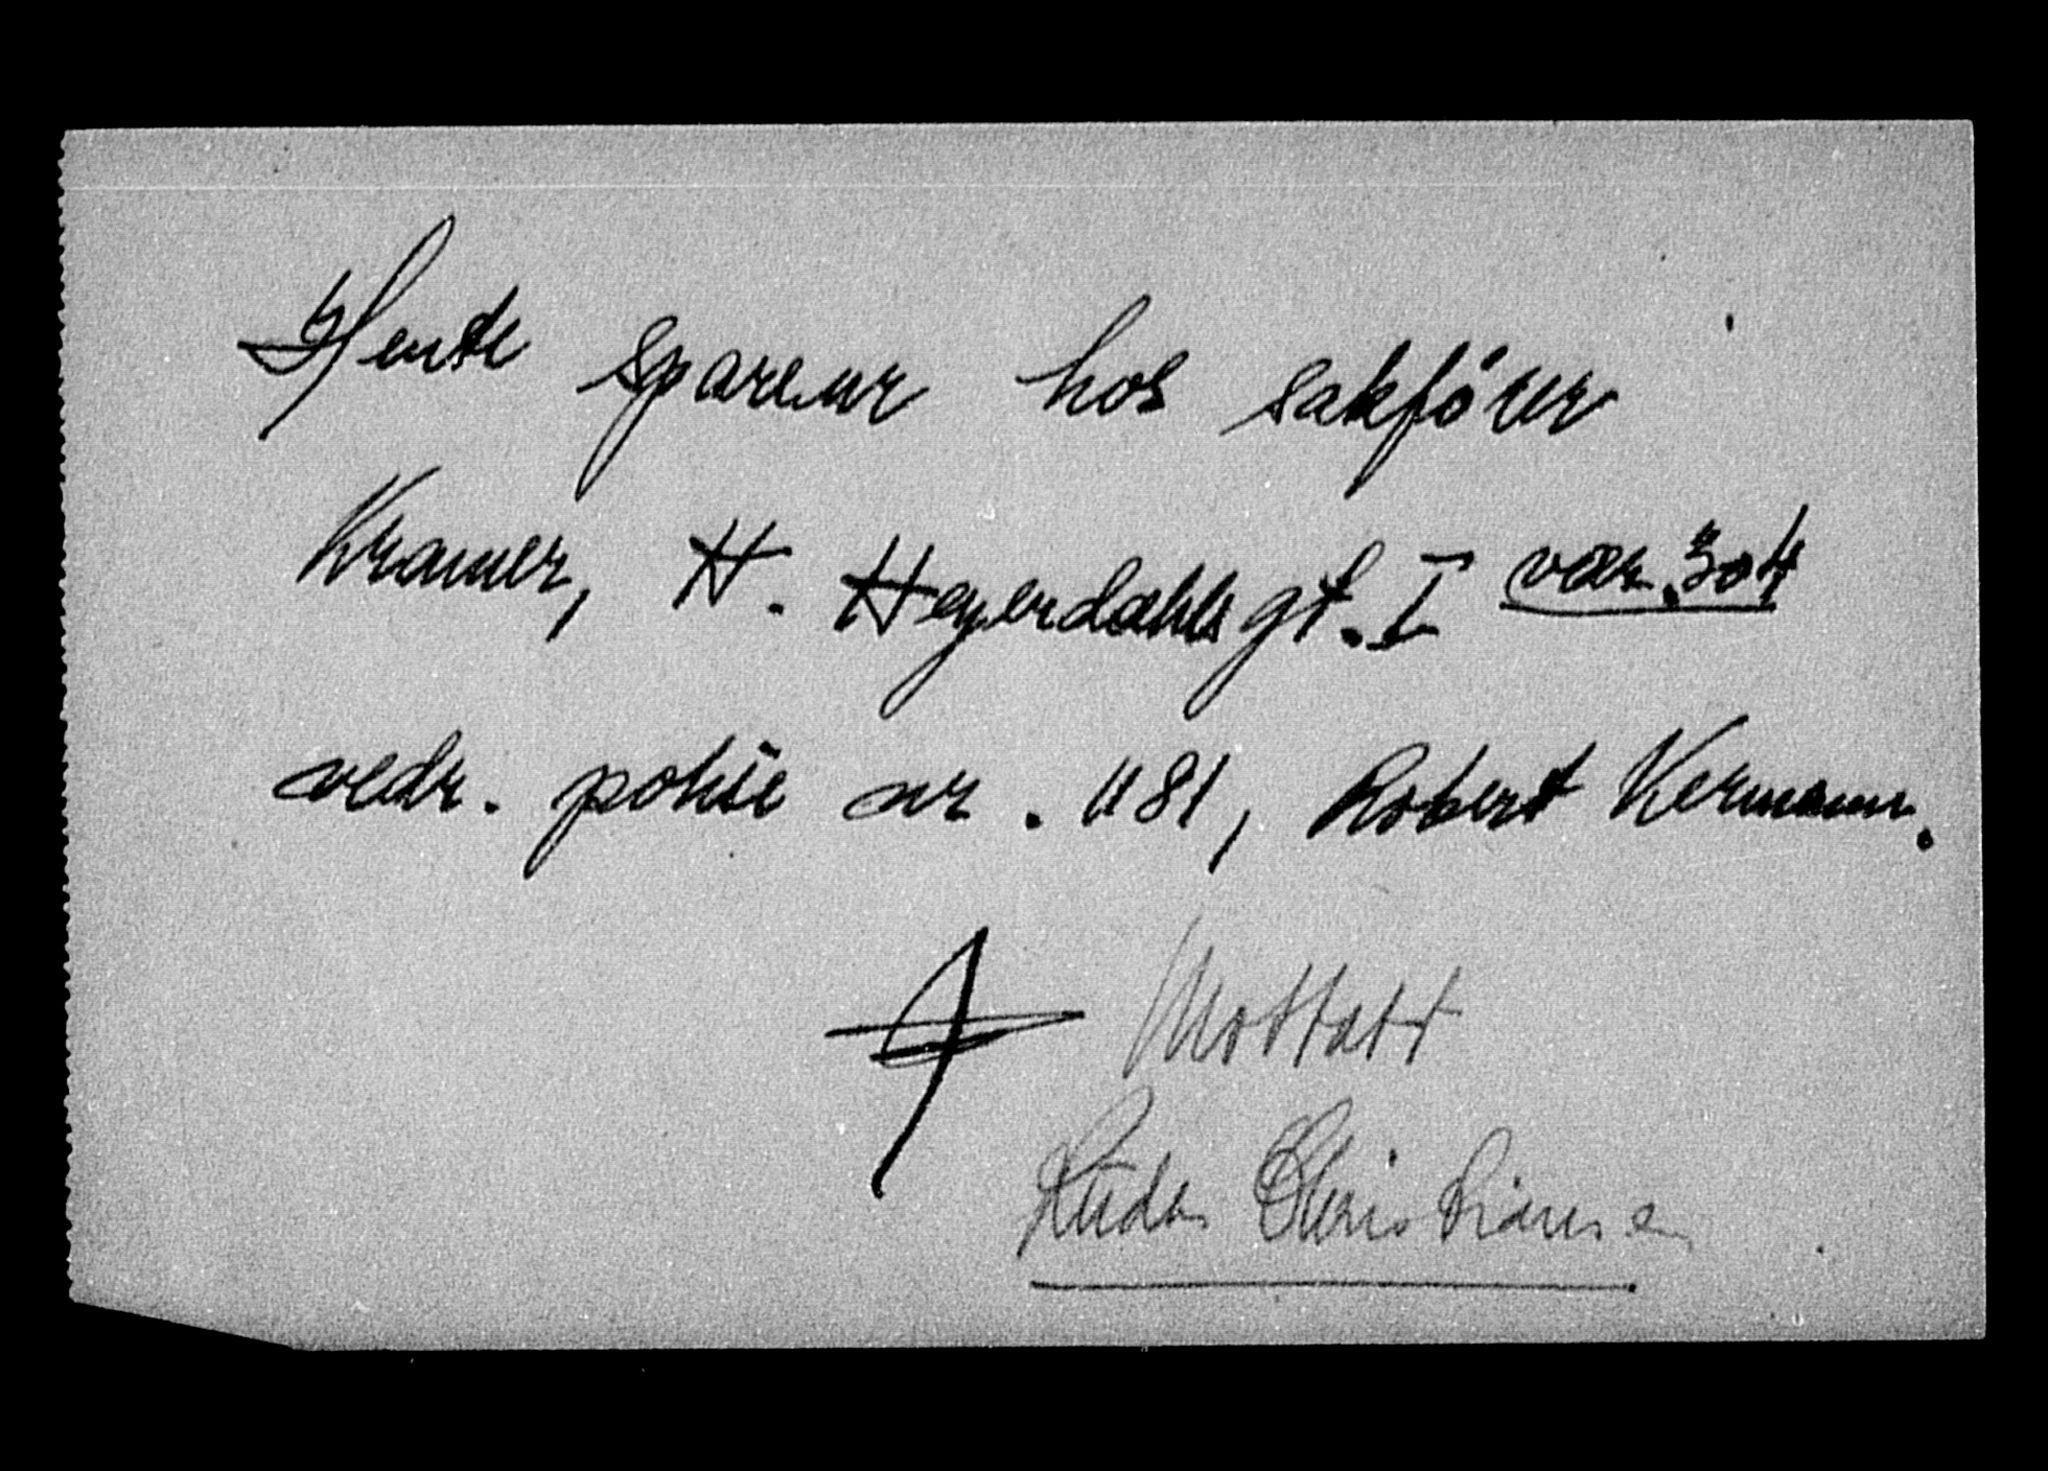 Hente spareur hos sakfører
Kramer, H. Heyerdahls gt. I vær. 304
vedr. polise nr. 1181, Robert Kermann.
Mottatt
Christiansen